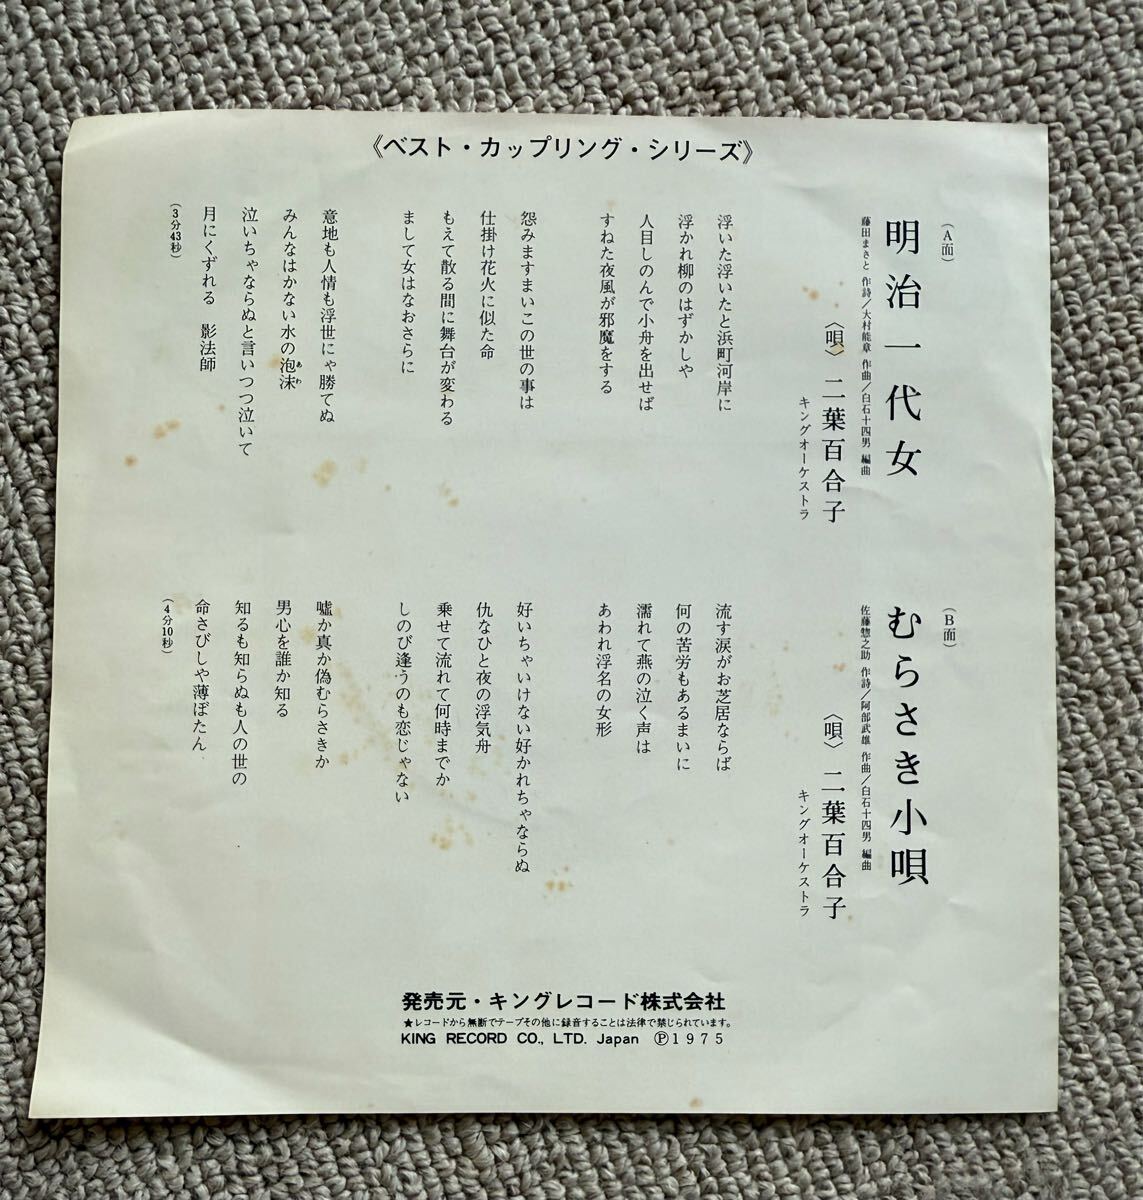 《ベスト・カップリング・シリーズ》
(A面)
明治一代女
藤田まさと 作詩/大村能章 作曲/白石十四男 編曲
〈唄〉 二葉百合子
キングオーケストラ
浮いた浮いたと浜町河岸に
浮かれ柳のはずかしや
人目しのんで小舟を出せば
すねた夜風が邪魔をする
怨みますまいこの世の事は
仕掛け花火に似た命
もえて散る間に舞台が変わる
まして女はなおさらに
意地も人情も浮世にゃ勝てぬ
みんなはかない水の泡沫(あわ)
泣いちゃならぬと言いつつ泣いて
月にくずれる 影法師
(3分43秒)
(B面)
むらさき小唄
佐藤惣之助 作詩/阿部武雄 作曲/白石十四男 編曲
〈唄〉 二葉百合子
キングオーケストラ
流す涙がお芝居ならば
何の苦労もあるまいに
濡れて燕の泣く声は
あわれ浮名の女形
好いちゃいけない好かれちゃならぬ
仇なひと夜の浮気舟
乗せて流れて何時までか
しのび逢うのも恋じゃない
嘘か真か偽むらさきか
男心を誰か知る
知るも知らぬも人の世の
命さびしや薄ぼたん
(4分10秒)
発売元・キングレコード株式会社
★レコードから無断でテープその他に録音することは法律で禁じられています。
KING RECORD CO., LTD. Japan Ⓟ1975